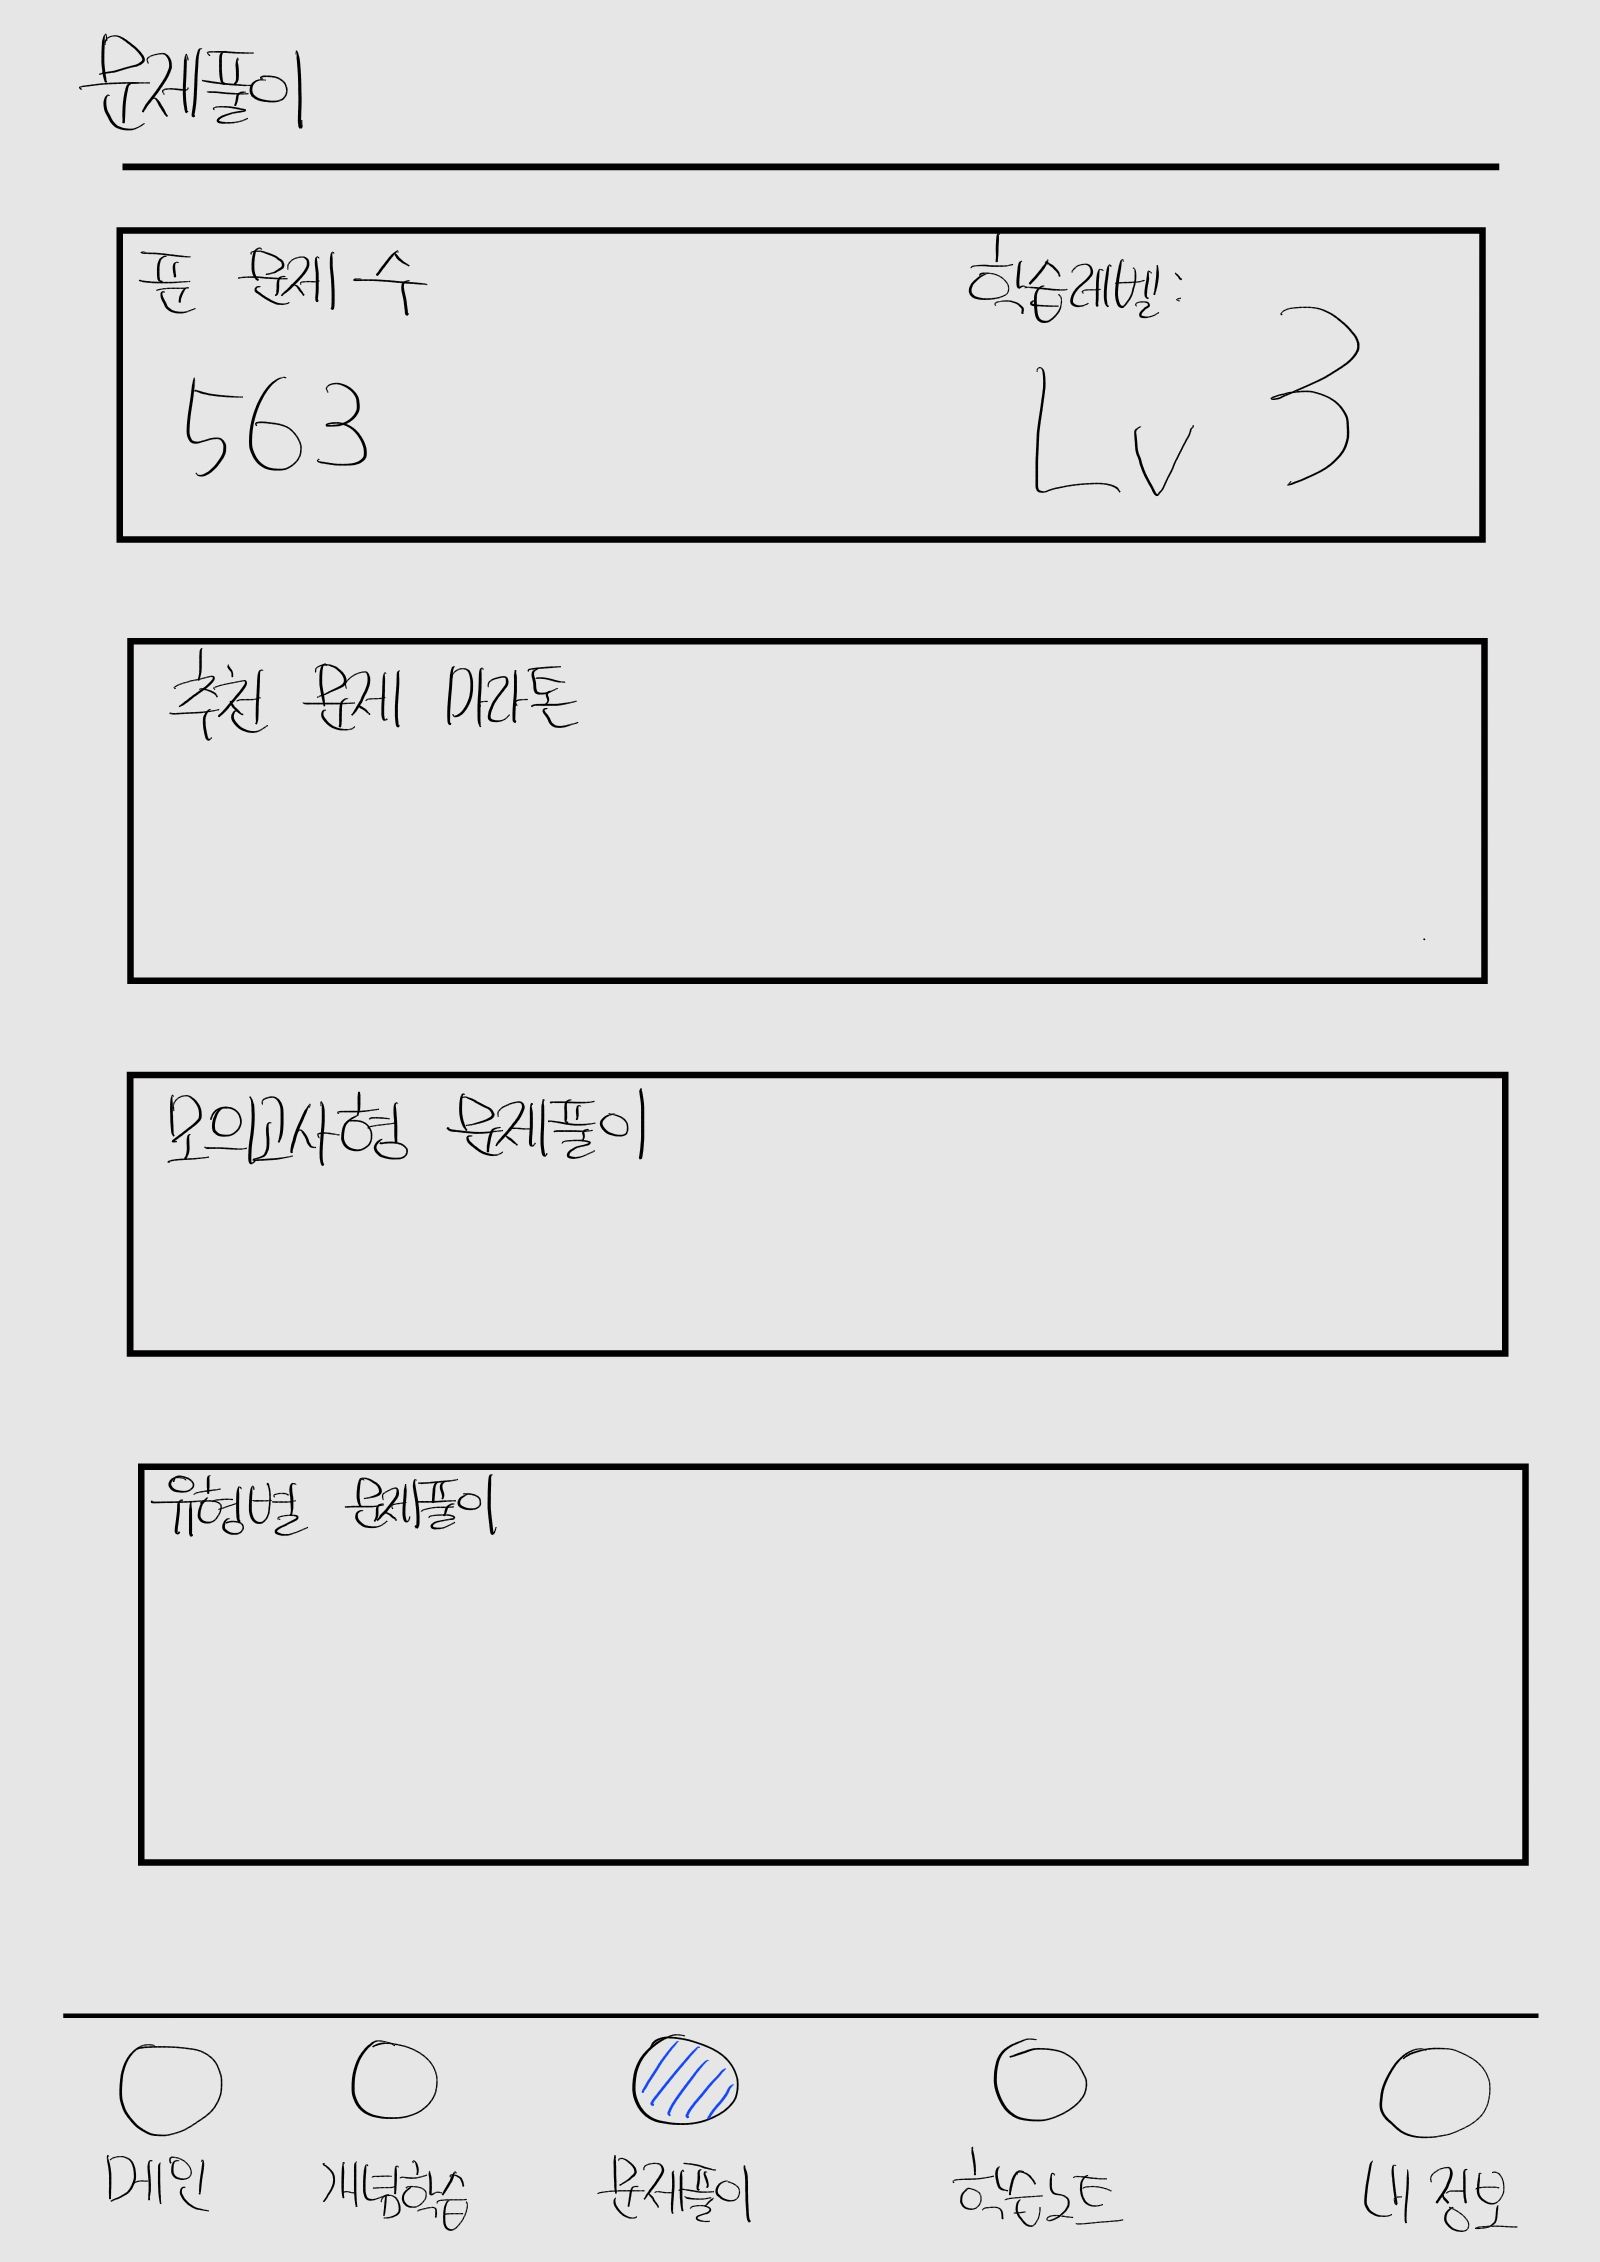 문제풀이
푼 문제 수 학습레벨:
563 Lv 3
추천 문제 마라톤
모의고사형 문제풀이
유형별 문제풀이
메인 개념학습 문제풀이 학습노트 내 정보